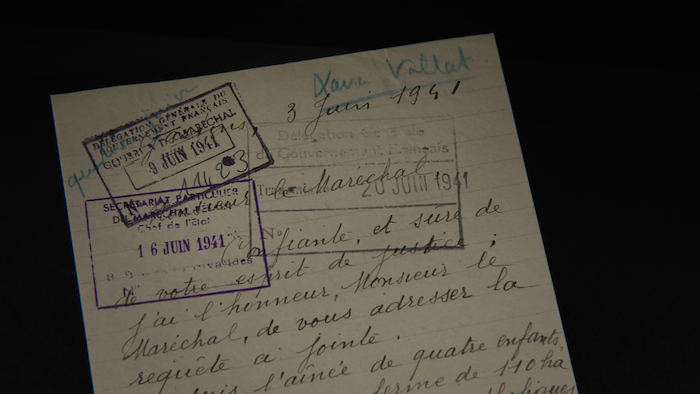 Xavier Vallat
3 Juin 1941
DÉLÉGATION GÉNÉRALE DU
GOUVERNEMENT FRANÇAIS
CABINET DU MARÉCHAL
9 JUIN 1941
11423
Délégation Générale
du Gouvernement Français
20 JUIN 1941
No
SECRÉTARIAT PARTICULIER
DU MARÉCHAL PÉTAIN
Chef de l'État
16 JUIN 1941
Monsieur le Maréchal
Confiante, et sûre de
de votre esprit de justice,
j'ai l'honneur, Monsieur le
Maréchal, de vous adresser la
requête ci jointe.
suis l'aînée de quatre enfants,
ferme de 110 ha